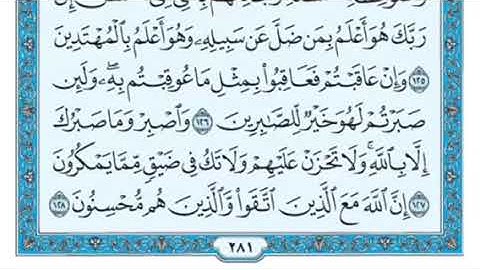 رَبَّكَ هُوَ أَعْلَمُ بِمَن ضَلَّ عَن سَبِيلِهِۦ وَهُوَ أَعْلَمُ بِٱلْمُهْتَدِينَ
١٢٥ وَإِنْ عَاقَبْتُمْ فَعَاقِبُوا۟ بِمِثْلِ مَا عُوقِبْتُم بِهِۦ وَلَئِن
صَبَرْتُمْ لَهُوَ خَيْرٌ لِّلصَّـٰبِرِينَ ١٢٦ وَٱصْبِرْ وَمَا صَبْرُكَ
إِلَّا بِٱللَّهِ وَلَا تَحْزَنْ عَلَيْهِمْ وَلَا تَكُ فِى ضَيْقٍ مِّمَّا يَمْكُرُونَ
١٢٧ إِنَّ ٱللَّهَ مَعَ ٱلَّذِينَ ٱتَّقَوا۟ وَّٱلَّذِينَ هُم مُّحْسِنُونَ ١٢٨
٢٨١